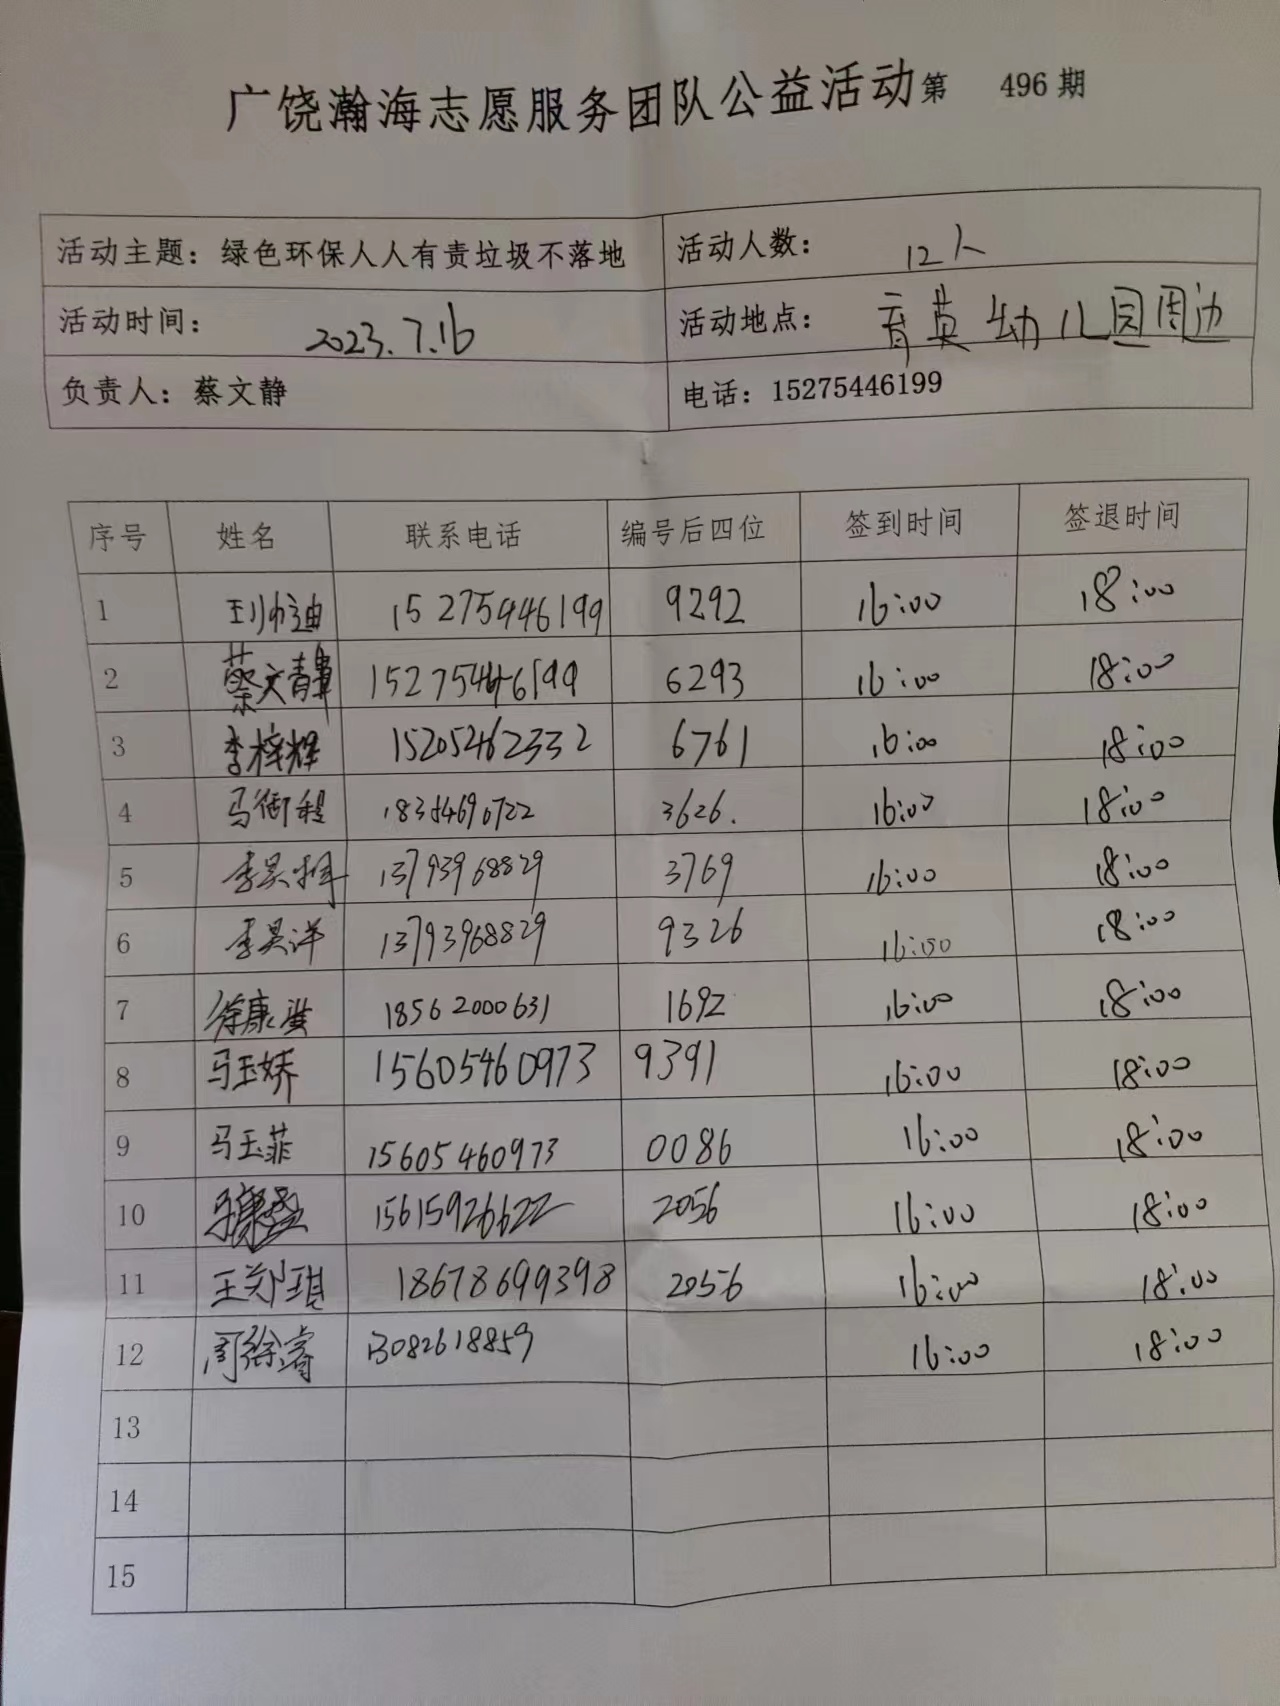 广饶瀚海志愿服务团队公益活动第 496 期
活动主题：绿色环保人人有责垃圾不落地 活动人数： 12人
活动时间： 2023.7.16 活动地点： 育英幼儿园周边
负责人：蔡文静 电话：15275446199
序号 姓名 联系电话 编号后四位 签到时间 签退时间
1 15275446199 9292 16:00 18:00
2 蔡文静 15275446199 6293 16:00 18:00
3 李梓辉 15205462332 6761 16:00 18:00
4 马御程 3626. 16:00 18:00
5 李昊 13793968829 3769 16:00 18:00
6 李昊洋 13793968829 9326 16:00 18:00
7 徐康 18562000631 1692 16:00 18:00
8 马玉娇 15605460973 9391 16:00 18:00
9 马玉菲 15605460973 0086 16:00 18:00
10 15615926622 2056 16:00 18:00
11 王郑琪 18678699398 2056 16:00 18:00
12 周徐睿 13082618859 16:00 18:00
13
14
15